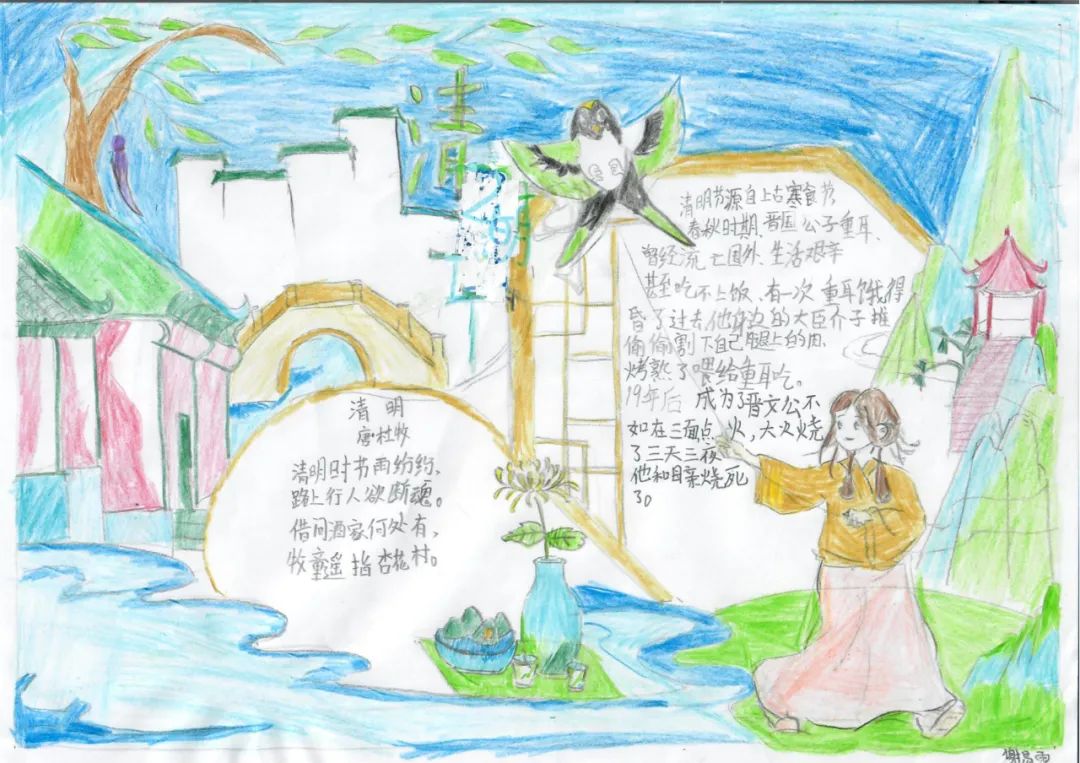 清明
清 明
唐·杜牧
清明时节雨纷纷、
路上行人欲断魂。
借问酒家何处有，
牧童遥指杏花村。
清明节源自上古寒食节
春秋时期、晋国公子重耳、
曾经流亡国外、生活艰辛
甚至吃不上饭、有一次重耳饿得
昏了过去他身边的大臣介子推
偷偷割下自己腿上的肉、
烤熟了喂给重耳吃。
19年后 成为了晋文公不
如在三面点 火，大火烧
了三天三夜
他和母亲烧死
了。